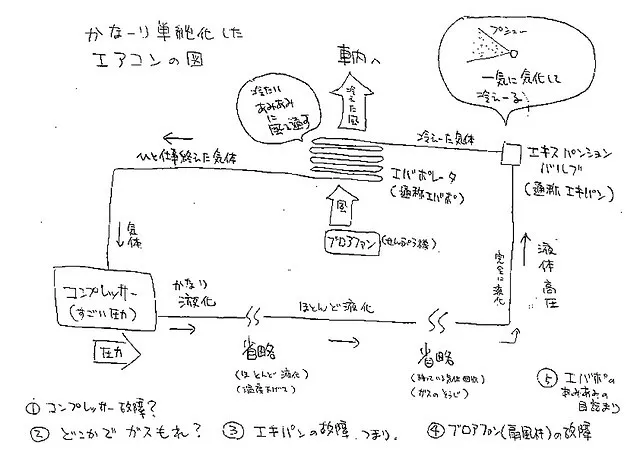 かなーり単純化した
エアコンの図
車内へ
プシュー
一気に気化して
冷えーる
冷たい
あみあみ
に
風を通す
冷えた風
冷えた気体
エキスパンション
バルブ
(通称エキパン)
ひと仕事終えた気体
エバポレータ
(通称エバポ)
風
ブロアファン
(せんぷう機)
気体
完全に液化
液体高圧
コンプレッサー
(すごい圧力)
かなり
液化
ほとんど液化
圧力
省略
(ほとんど液化)
(温度下げて)
省略
(残っている気体回収)
(ガスのとうじ)
① コンプレッサー故障?
② どこかでガスもれ?
③ エキパンの故障、つまり。
④ ブロアファン(扇風機)の故障
⑤ エバポの
あみあみの
目詰まり